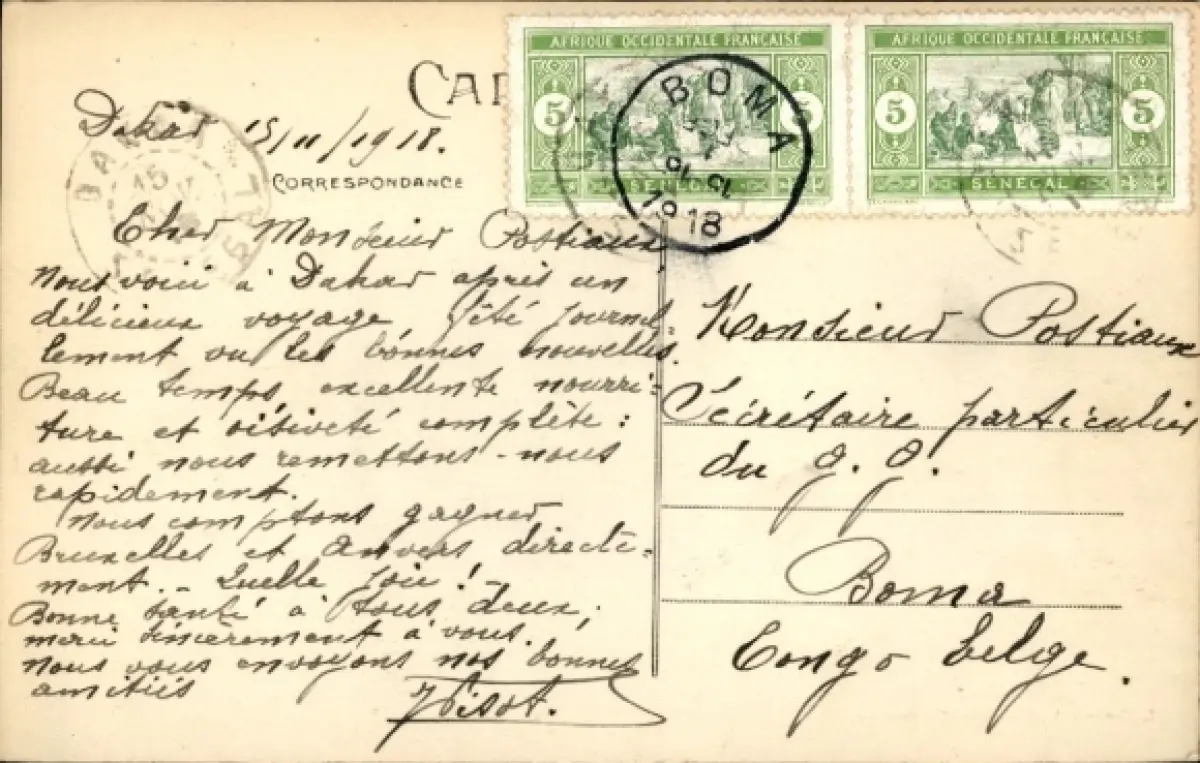 AFRIQUE OCCIDENTALE FRANÇAISE
5 5
SÉNÉGAL
AFRIQUE OCCIDENTALE FRANÇAISE
5 5
SÉNÉGAL
BOMA
18
DAKAR
15
CAR
Dakar 15/11/1918.
CORRESPONDANCE
Cher Monsieur Postiaux
nous voici à Dakar après un
délicieux voyage, fêté journel-
lement vu les bonnes nouvelles.
Beau temps, excellente nourri-
ture et oisiveté complète :
aussi nous remettons-nous
rapidement.
Nous comptons gagner
Bruxelles et Anvers directe-
ment. - Quelle joie ! -
Bonne santé à tous deux,
merci sincèrement à vous.
Nous vous envoyons nos bonnes
amitiés
Monsieur Postiaux
Secrétaire particulier
du G. G.
Boma
Congo belge.